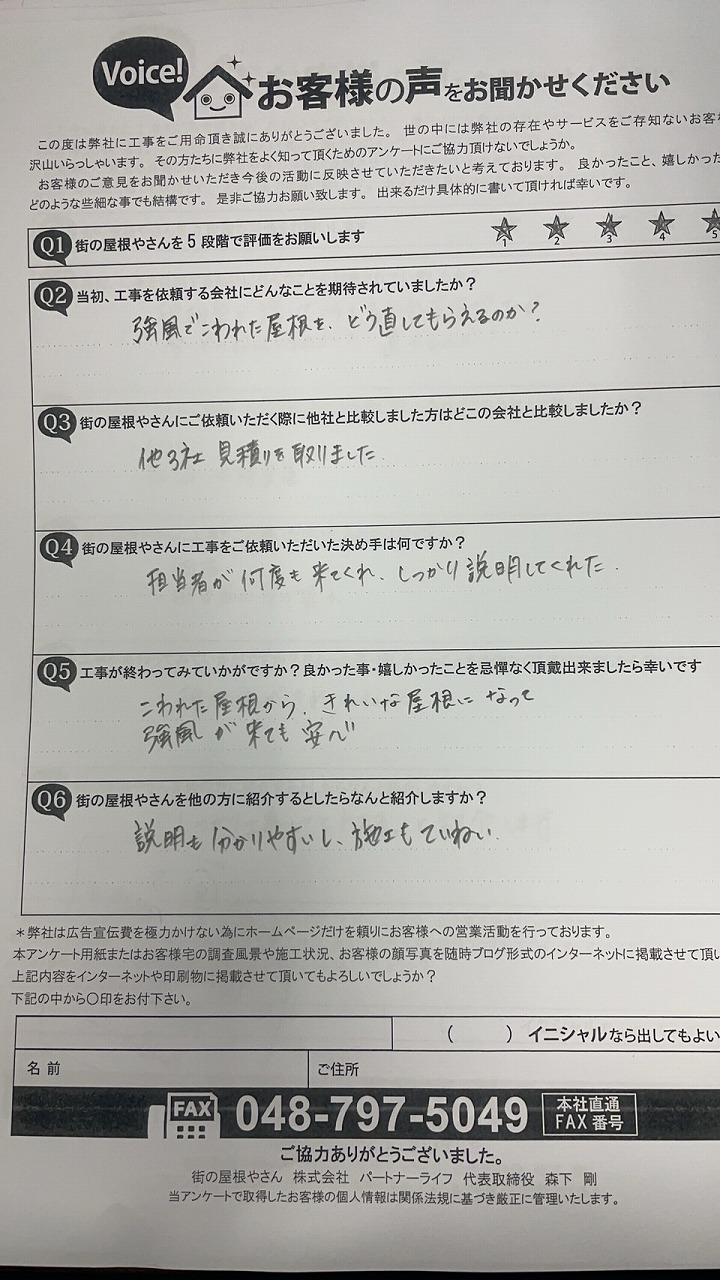 Voice!
お客様の声をお聞かせください
この度は弊社に工事をご用命頂き誠にありがとうございました。 世の中には弊社の存在やサービスをご存知ないお客様
沢山いらっしゃいます。 その方たちに弊社をよく知って頂くためのアンケートにご協力頂けないでしょうか。
お客様のご意見をお聞かせいただき今後の活動に反映させていただきたいと考えております。 良かったこと、嬉しかった
どのような些細な事でも結構です。 是非ご協力お願い致します。 出来るだけ具体的に書いて頂ければ幸いです。
Q1 街の屋根やさんを 5 段階で評価をお願いします 1 2 3 4 5
Q2 当初、工事を依頼する会社にどんなことを期待されていましたか?
強風でこわれた屋根を、どう直してもらえるのか?
Q3 街の屋根やさんにご依頼いただく際に他社と比較しました方はどこの会社と比較しましたか?
他3社 見積りを取りました
Q4 街の屋根やさんに工事をご依頼いただいた決め手は何ですか?
担当者が何度も来てくれ、しっかり説明してくれた.
Q5 工事が終わってみていかがですか?良かった事・嬉しかったことを忌憚なく頂戴出来ましたら幸いです
こわれた屋根から、きれいな屋根になって
強風が来ても安心
Q6 街の屋根やさんを他の方に紹介するとしたらなんと紹介しますか?
説明も分かりやすいし、施工もていねい.
＊弊社は広告宣伝費を極力かけない為にホームページだけを頼りにお客様への営業活動を行っております。
本アンケート用紙またはお客様宅の調査風景や施工状況、お客様の顔写真を随時ブログ形式のインターネットに掲載させて頂い
上記内容をインターネットや印刷物に掲載させて頂いてもよろしいでしょうか?
下記の中から〇印をお付下さい。
( ) イニシャルなら出してもよい
名 前 ご住所
FAX 048-797-5049 本社直通
FAX 番号
ご協力ありがとうございました。
街の屋根やさん 株式会社 パートナーライフ 代表取締役 森下 剛
当アンケートで取得したお客様の個人情報は関係法規に基づき厳正に管理いたします。